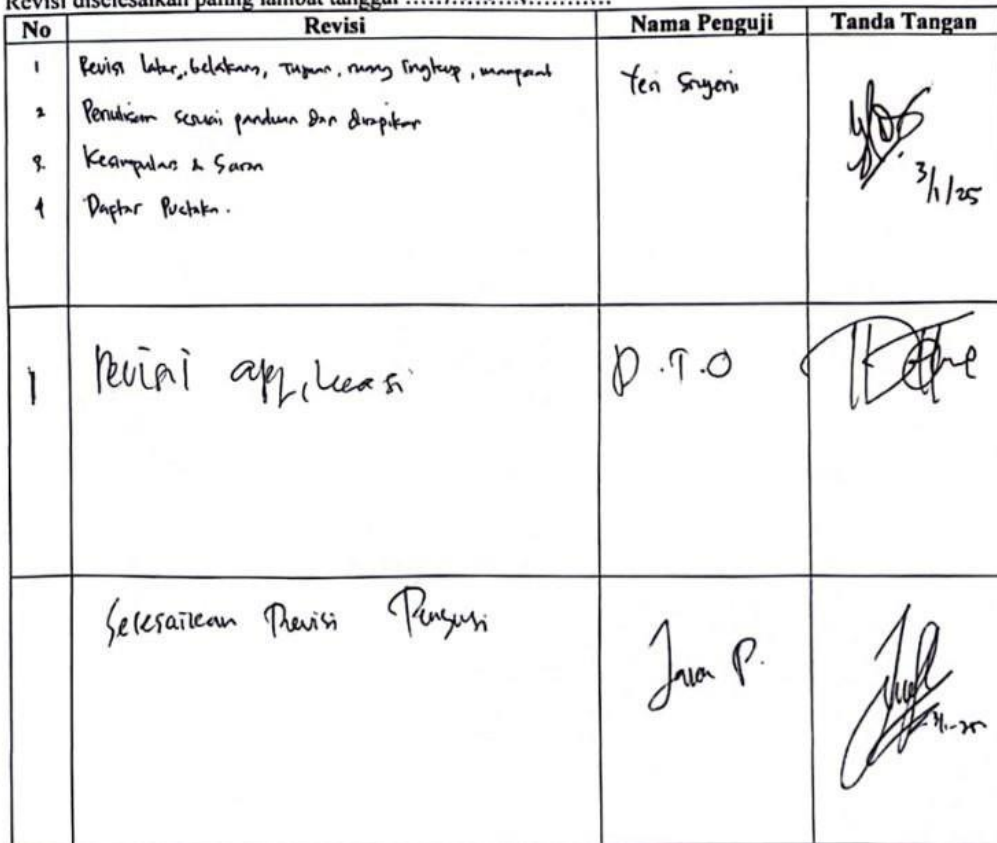 Revisi diselesaikan paling lambat tanggal ..............................
No Revisi Nama Penguji Tanda Tangan
1 Revisi latar belakang, Tujuan, ruang lingkup, manfaat Yeri
2 Penulisan sesuai panduan dan dirapikan
3. Kesimpulan & Saran
3/1/25
4 Daftar Pustaka.
1 Revisi aplikasi D.T.O
Selesaikan Revisi Penguji
P.
3/1-25